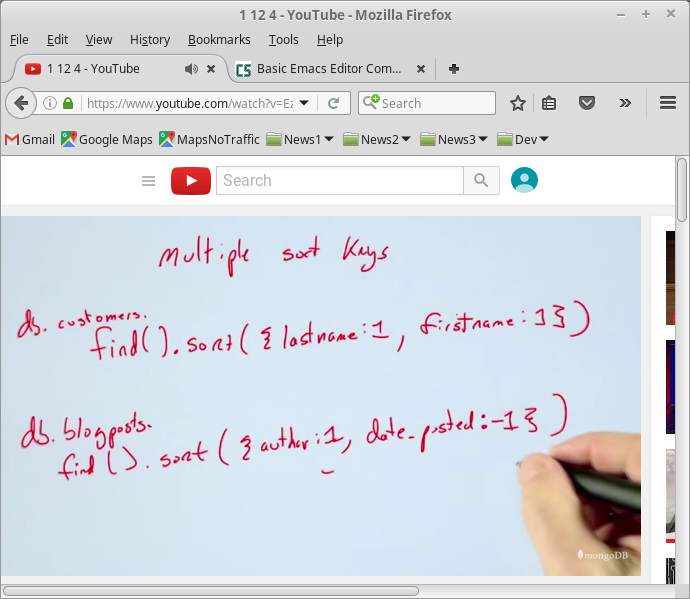 1 12 4 - YouTube - Mozilla Firefox
File Edit View History Bookmarks Tools Help
1 12 4 - YouTube
Basic Emacs Editor Com...
https://www.youtube.com/watch?v=Ez
Search
Gmail Google Maps MapsNoTraffic News1 News2 News3 Dev
Search
Multiple sort Keys
db. customers.
find().sort({lastname:1, firstname:1})
db. blogposts.
find().sort({author:1, date_posted:-1})
mongoDB